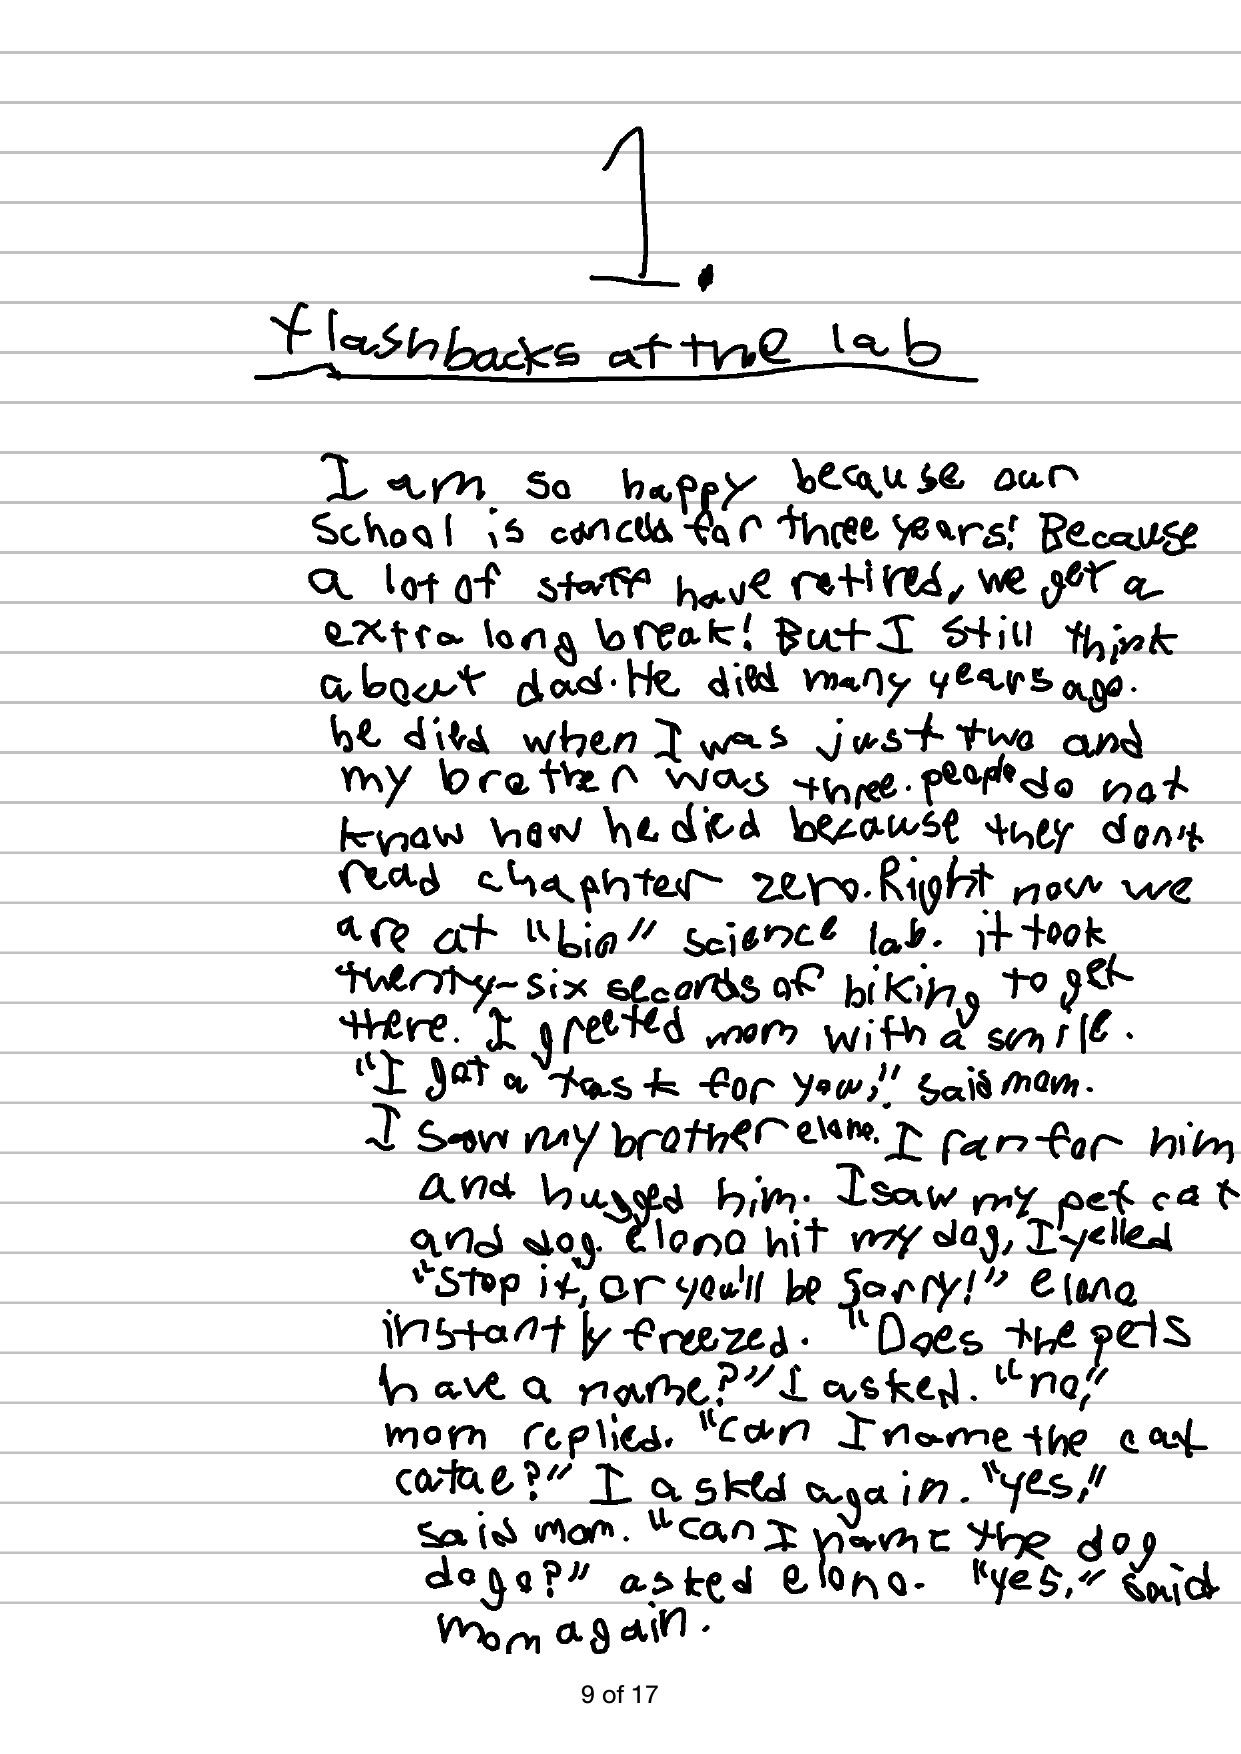 1.
flashbacks at the lab
I am so happy because our
school is canceld for three years! Because
a lot of staff have retired, we get a
extra long break! But I still think
about dad. He died many years ago.
he died when I was just two and
my brother was three. people do not
know how he died because they don't
read chaphter zero. Right now we
are at "bio" science lab. it took
twenty-six seconds of biking to get
there. I greeted mom with a smile.
"I got a task for you," said mom.
I saw my brother elono. I ran for him
and hugged him. I saw my pet cat
and dog. elono hit my dog, I yelled
"Stop it, or you'll be sorry!" elono
instantly freezed. "Does the pets
have a name?" I asked. "no,"
mom replied. "can I name the cat
catae?" I asked again. "yes,"
said mom. "can I name the dog
dogo?" asked elono. "yes," said
mom again.
9 of 17